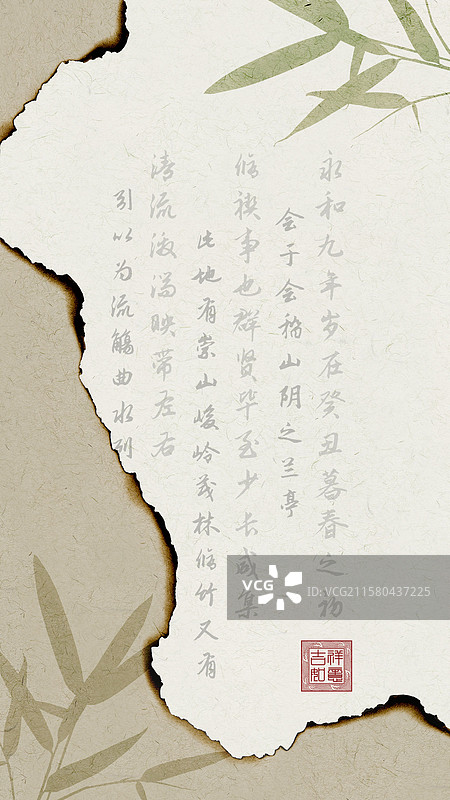 永和九年岁在癸丑暮春之初
会于会稽山阴之兰亭
修禊事也群贤毕至少长咸集
此地有崇山峻岭茂林修竹又有
清流激湍映带左右
引以为流觞曲水列
吉祥
如意
VCG
ID:VCG211580437225